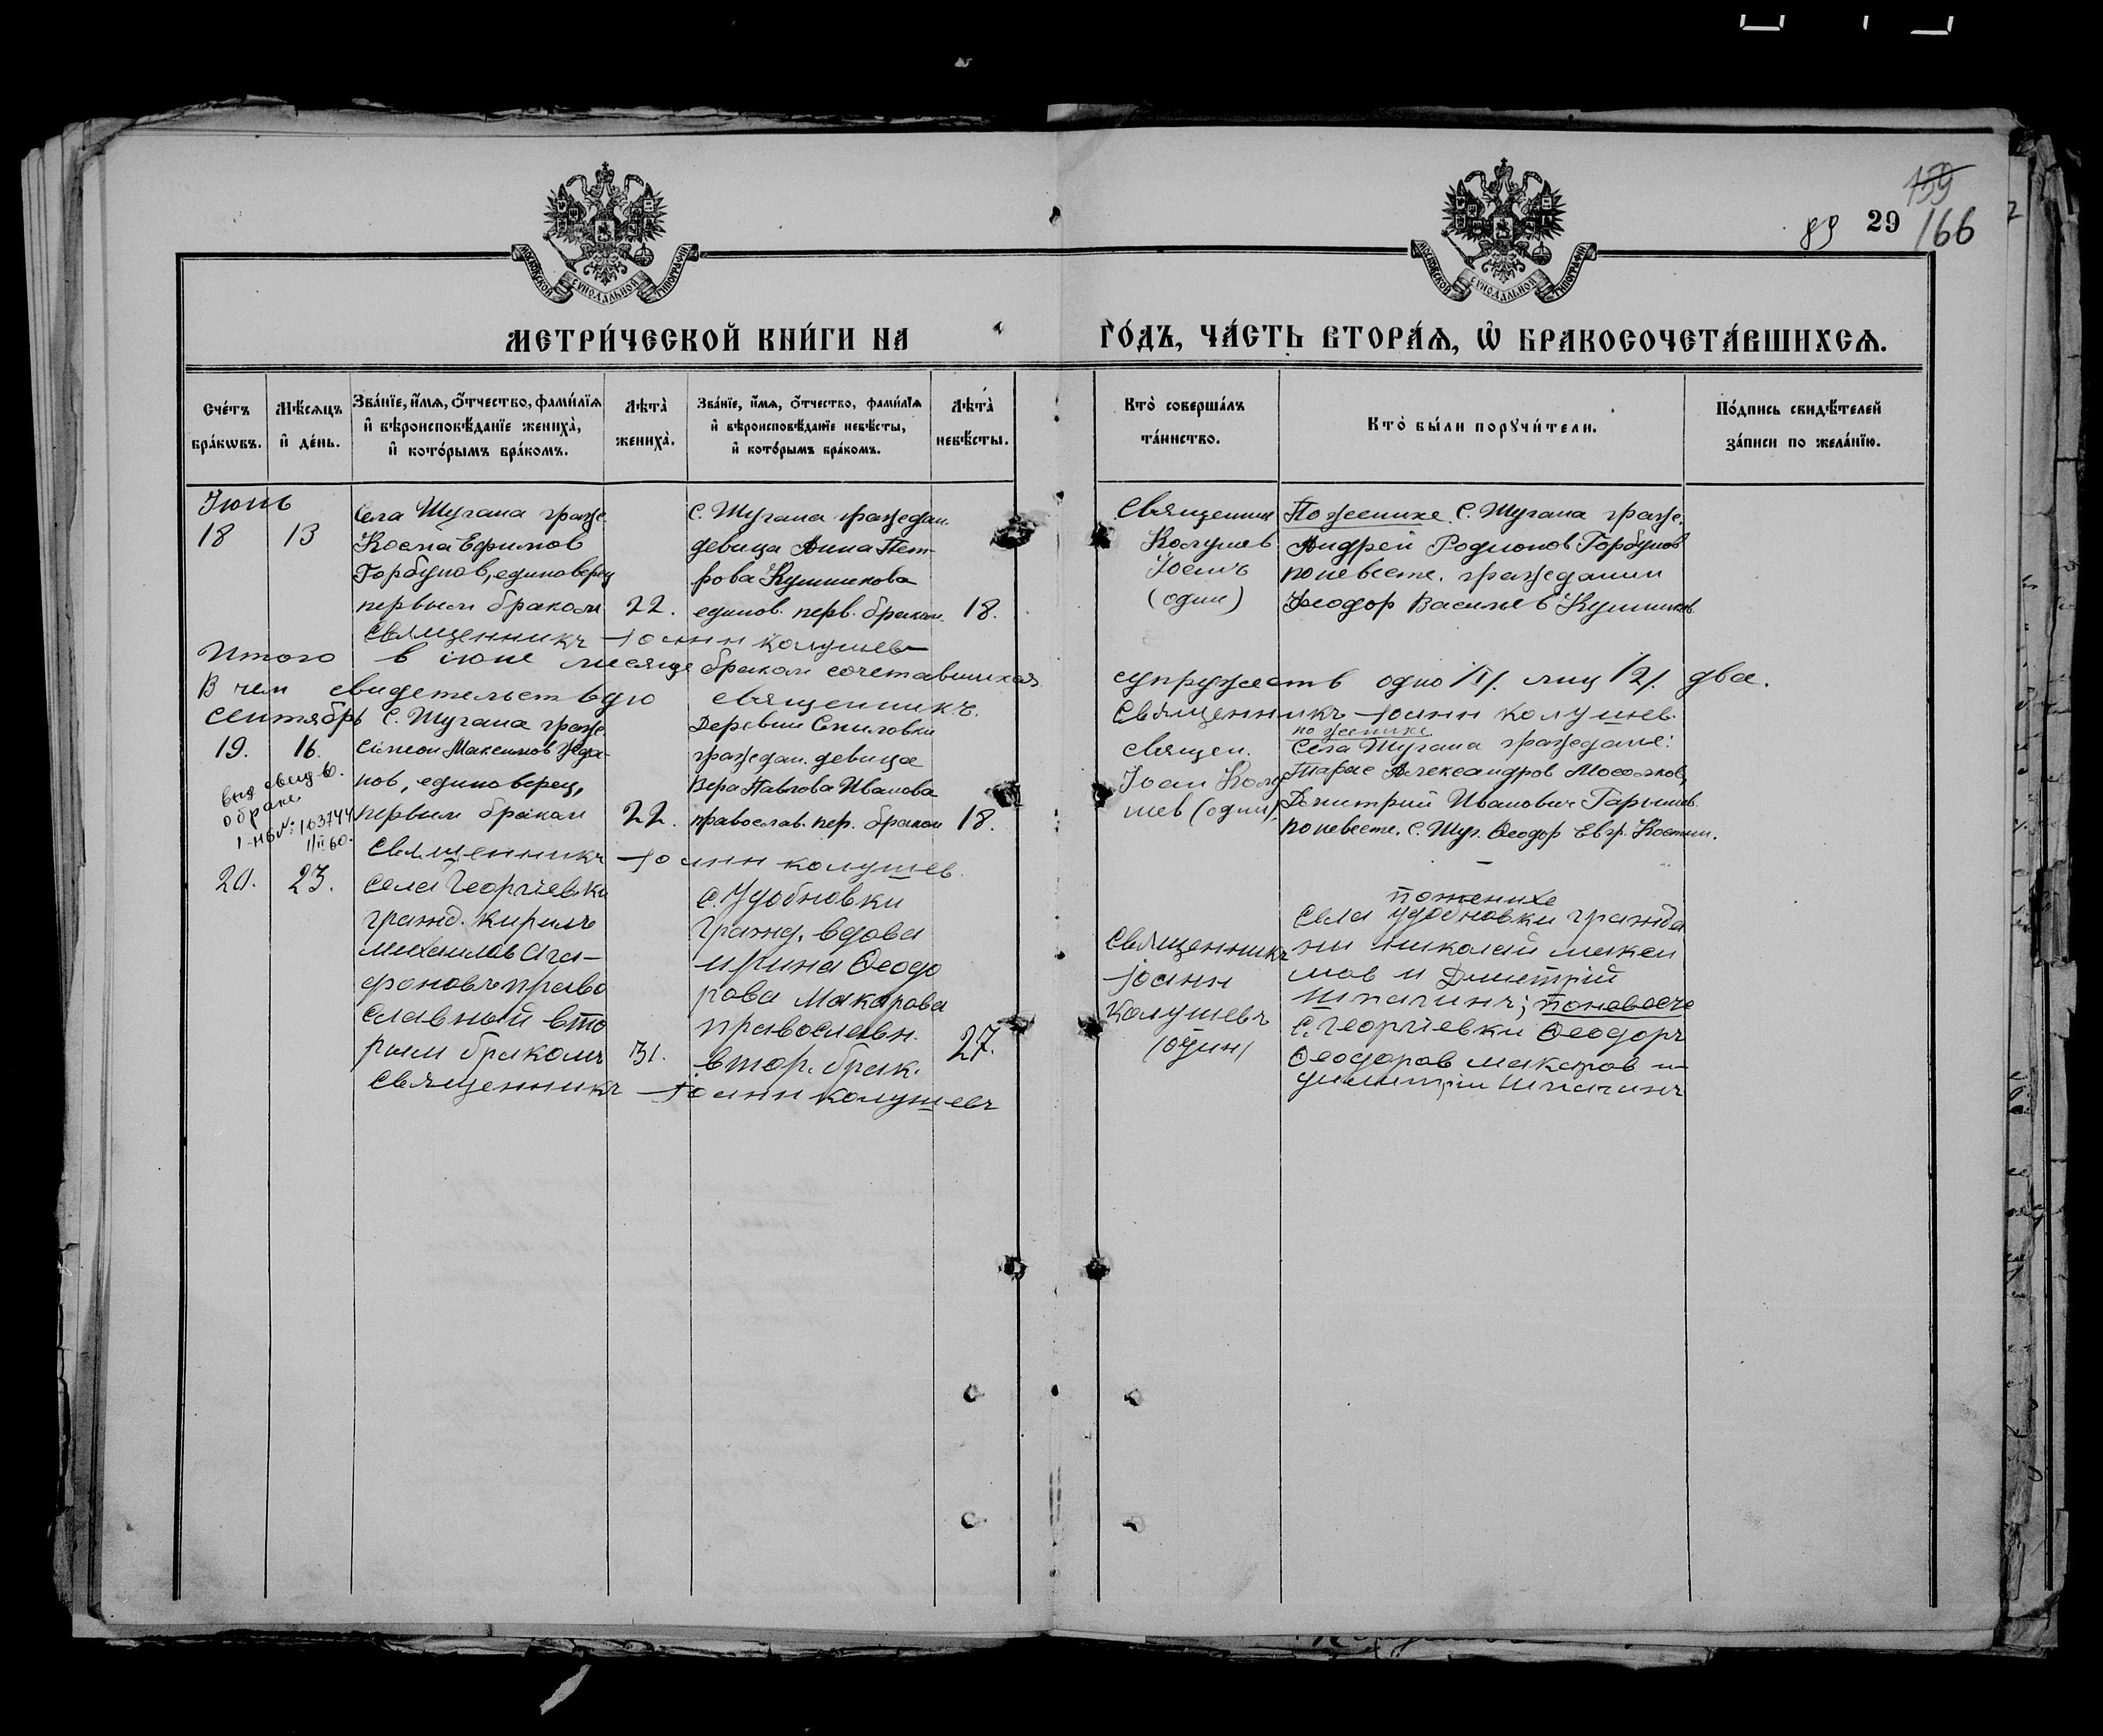 159
89 29 166
МОСКОВСКОЙ СѴНОДАЛЬНОЙ ТИПОГРАФІИ
МОСКОВСКОЙ СѴНОДАЛЬНОЙ ТИПОГРАФІИ
МЕТРИ́ЧЕСКОЙ КНИ́ГИ НА
ГО́ДЪ, ЧА́СТЬ ВТОРА́Ѧ, Ѡ҆ БРАКОСОЧЕТА́ВШИХСѦ.
Сче́тъ
бра́кѡвъ.
Мѣ́сяцъ
и҆ де́нь.
Зва́нїе, и҆́мѧ, ѻ҆́тчество, фамѝлїѧ
и҆ вѣроисповѣ́данїе жениха̀,
и҆ кото́рымъ бра́комъ.
Лѣ́та̀
жениха̀.
Зва́нїе, и҆́мѧ, ѻ҆́тчество, фамѝлїѧ
и҆ вѣроисповѣ́данїе невѣ́сты,
и҆ кото́рымъ бра́комъ.
Лѣ́та̀
невѣ́сты.
Кто̀ соверша́лъ
та́инство.
Кто̀ бы́ли порꙋчи́тели.
По́дпись свидѣ́телей
за́писи по жела́нїю.
Июнь
18 13
Села Шугана граж.
Косма Ефимов
Горбунов, единоверец
первым браком 22.
С. Шугана граждан.
девица Анна Пет-
рова Кушникова
единов. перв. браком. 18.
Священник
Колушев
Иоанъ
(один)
По женихе. С. Шугана граж.
Андрей Родионов Горбунов
по невесте. гражданин
Феодор Васильев Кушников
Священникъ Иоанн Колушев
Итого в июне месяце браком сочетавшихся супружеств одно /1/. лиц /2/. два.
В чем свидетельствую священникъ. Священникъ Иоанн Колушев.
Сентябрь
19. 16.
выд свид. о
браке
103744
1/II 60.
С. Шугана граж.
Симеон Максимов Жда-
нов, единоверец,
первым браком 22.
Деревни Спиловки
граждан. девица
Вера Павлова Иванова
православ. пер. браком 18.
Священ.
Иоан Колу
шев (один)
по женихе
Села Шугана граждане:
Тарас Александров
Димитрий Иванович Гарышев
По невесте. С. Шуг. Ѳеодор Евгр. Костин.
Священникъ Иоанн Колушев.
20. 23.
Села Георгіевки
гражд. Кирилъ
Михаилов Ага-
фоновъ право
славный вто
рым бракомъ 31.
С. Удобновки
Гражд. вдова
Ирина Ѳеодо
рова Макарова
православн.
втор. брак. 27.
Священникъ
Иоанн
Колушевъ
/один/
по женихе
Села Удобновки гражда
ни Николай Макси
мов и Дмитрій
Шпагинъ; по невесте
С. Георгіевки Ѳеодоръ
Ѳеодоров Макаров и
Димитрій Шпагинъ
Священникъ Иоанн Колушевъ